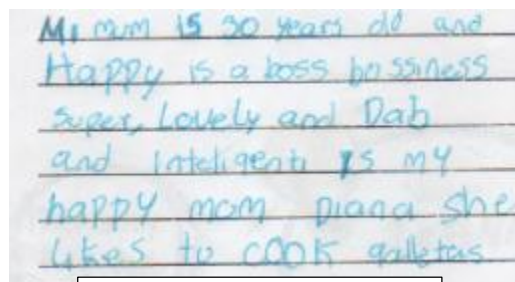 Mi mum is 30 years old and
Happy is a boss bussiness
super, Lovely and Dab
and inteligenti is my
happy mom Diana she
likes to cook galletas